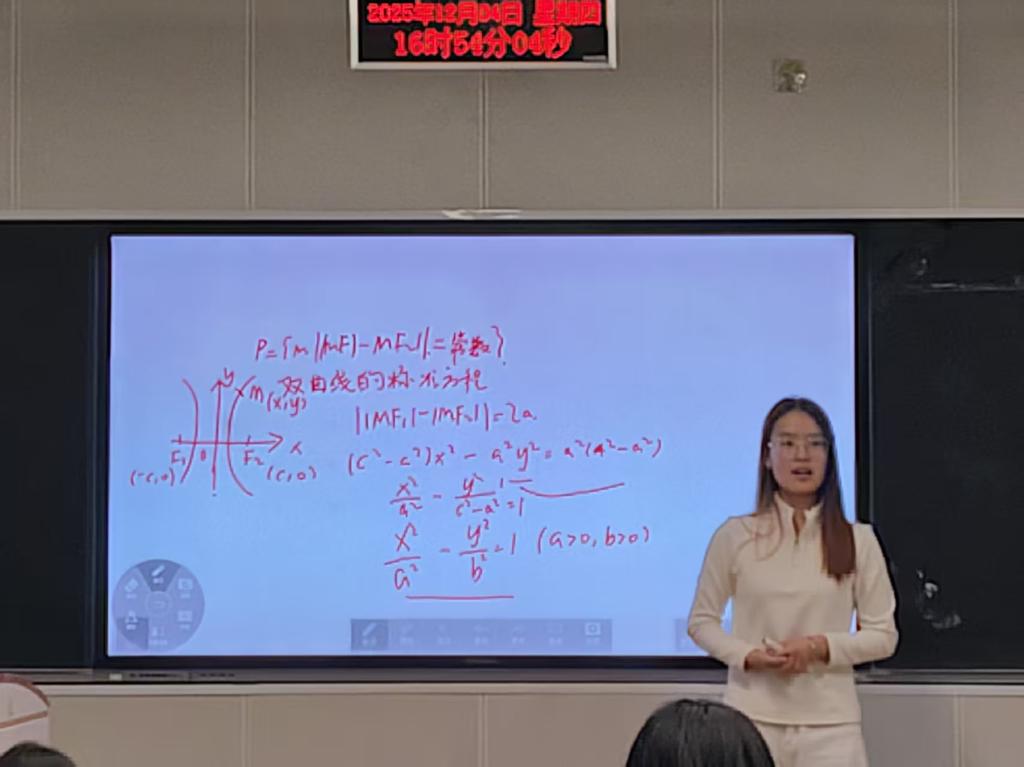 2025年12月04日 星期四
16时54分04秒
P={M||MF₁|-MF₂||=常数}
双曲线的标准方程
||MF₁|-|MF₂||=2a
(c²-a²)x²-a²y²=a²(c²-a²)
x²/a² - y²/c²-a² =1
x²/a² - y²/b² =1 (a>0,b>0)
y
M(x,y)
F₁ 0 F₂ x
(-c,0) (c,0)